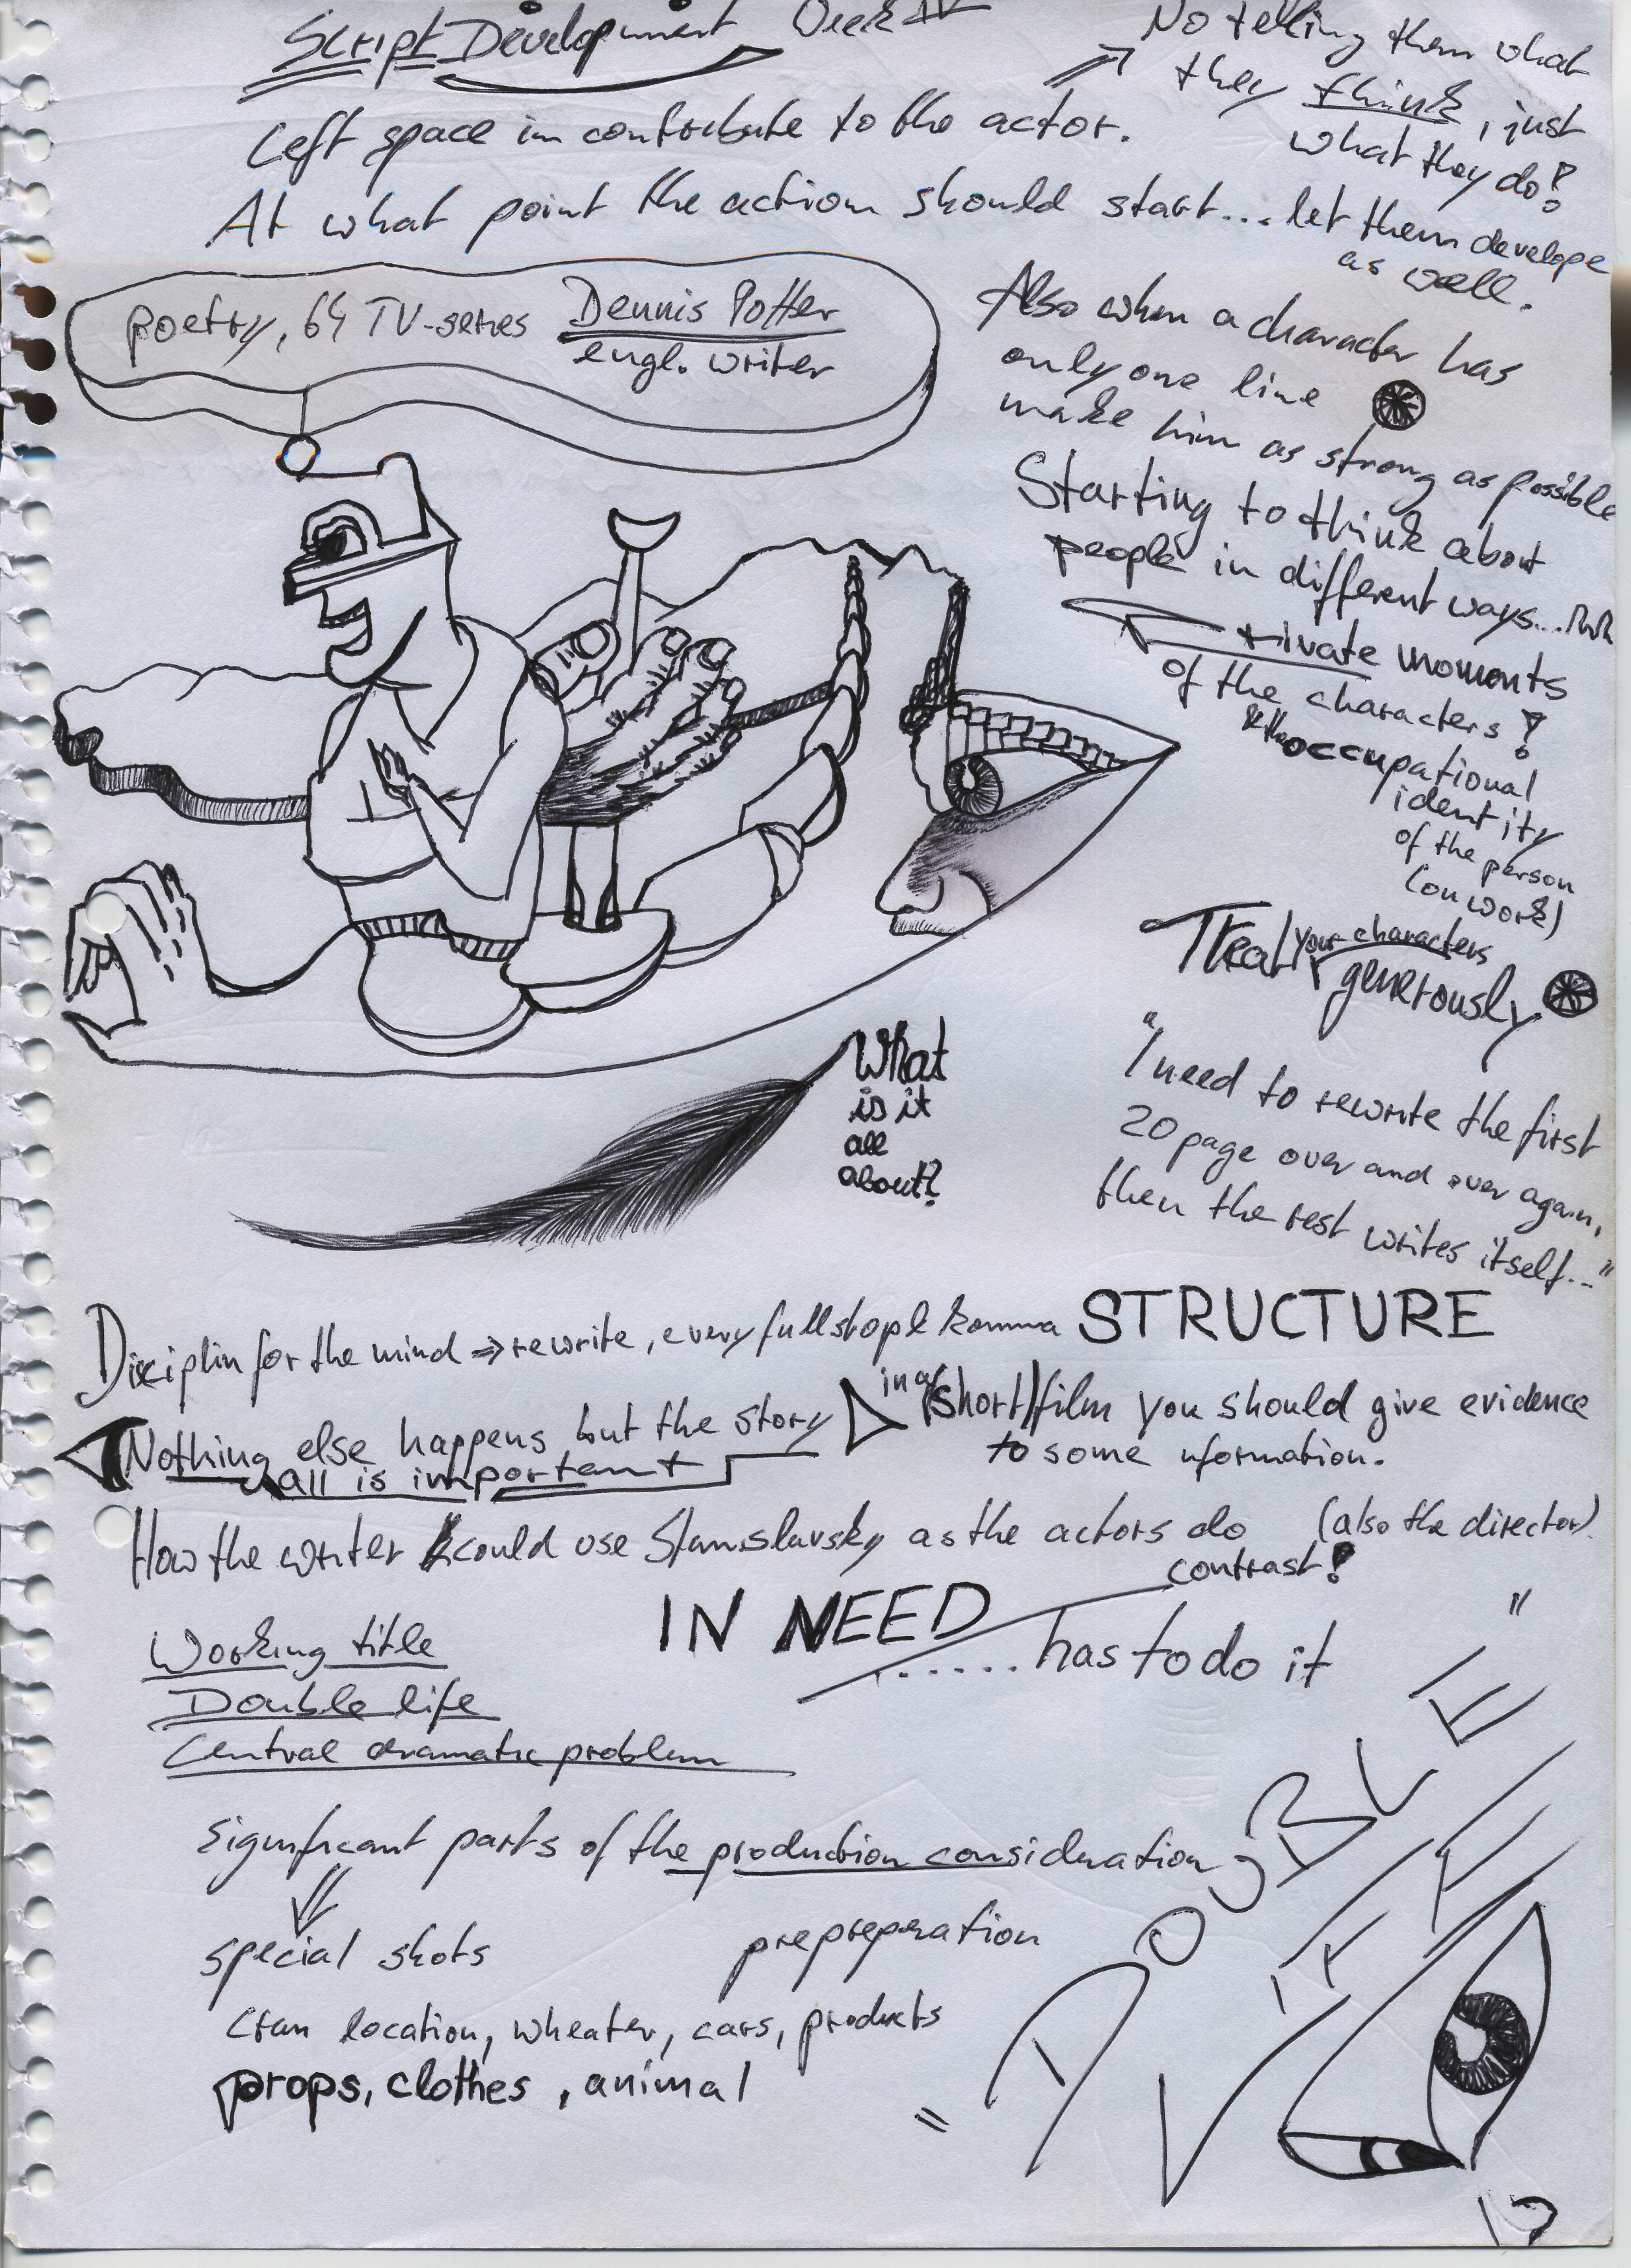 Script Development Week IV
No telling them what
they think, just
what they do!
Left space im contribute to the actor.
At what point the action should start... let them develope
as well.
poetry, 64 TV-series Dennis Potter
engl. writer
Also when a character has
only one line
make him as strong as possible
Starting to think about
people in different ways...
private moments
of the characters!
& the occupational
identity
of the person
(on work)
Treat your characters
generously
"I need to rewrite the first
20 page over and over again,
then the rest writes itself..."
What
is it
all
about?
Disciplin for the mind ⇒ rewrite, every full stop & komma STRUCTURE
Nothing else happens but the story
all is important
in a (short) film you should give evidence
to some nformation.
How the writer could use Stanislavsky as the actors do (also the director)
contrast!
IN NEED
...... has to do it
Working title
Double life
Central dramatic problem
Significant parts of the production consideration
special shots prepreperation
location, wheater, cars, products
props, clothes, animal
"DOUBLE"
LIFE
17